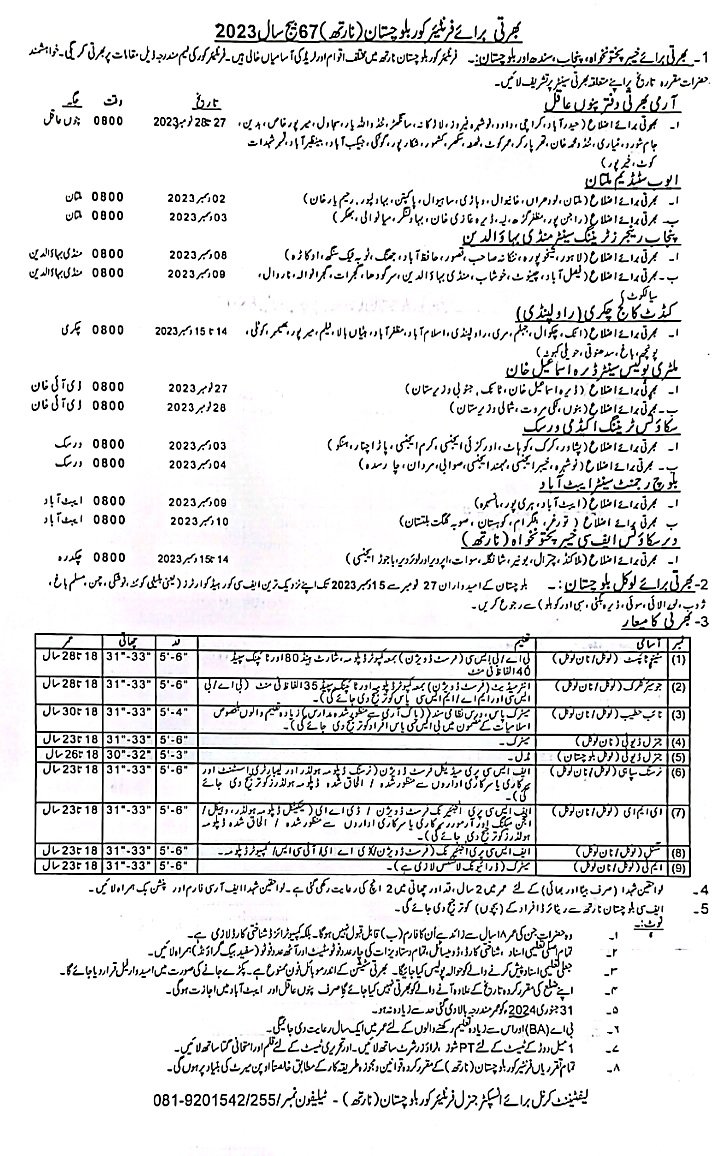 بھرتی برائے فرنٹیئر کور بلوچستان (نارتھ) 67 بیج سال 2023
1- بھرتی برائے خیبر پختونخواہ، پنجاب، سندھ اور بلوچستان:- فرنٹیئر کور بلوچستان نارتھ میں مختلف اقوام اور ٹریڈ کی آسامیاں خالی ہیں۔ فرنٹیئر کور کی ٹیم مندرجہ ذیل مقامات پر بھرتی کریگی۔ خواہشمند
حضرات مقررہ تاریخ پر اپنے متعلقہ بھرتی سینٹر پر تشریف لائیں۔
آرمی بھرتی دفتر پنوں عاقل تاریخ وقت جگہ
ا۔ بھرتی برائے اضلاع (حیدرآباد، کراچی، دادو، نوشہرہ فیروز، لاڑکانہ، سانگھڑ، ٹنڈوالہ یار، سجاول، میرپور خاص، بدین، 27 تا 28 نومبر 2023 0800 پنوں عاقل
جام شورو، مٹیاری، ٹنڈو محمد خان، تھرپارکر، عمرکوٹ، ٹھٹھہ، سکھر، کشمور، شکارپور، گھوٹکی، جیکب آباد، بینظیر آباد، قمبر شہداد
کوٹ، خیرپور)
ایوب سٹیڈیم ملتان
ا۔ بھرتی برائے اضلاع (ملتان، لودھراں، خانیوال، وہاڑی، ساہیوال، پاکپتن، بہاولپور، رحیم یار خان) 02 دسمبر 2023 0800 ملتان
ب۔ بھرتی برائے اضلاع (راجن پور، مظفر گڑھ، لیہ، ڈیرہ غازی خان، بہاولنگر، میانوالی، بھکر) 03 دسمبر 2023 0800 ملتان
پنجاب رینجرز ٹریننگ سینٹر منڈی بہاؤالدین
ا۔ بھرتی برائے اضلاع (لاہور، شیخوپورہ، ننکانہ صاحب، قصور، حافظ آباد، جھنگ، ٹوبہ ٹیک سنگھ، اوکاڑہ) 08 دسمبر 2023 0800 منڈی بہاؤالدین
ب۔ بھرتی برائے اضلاع (فیصل آباد، چنیوٹ، خوشاب، منڈی بہاؤالدین، سرگودھا، گجرات، گجرانوالہ، ناروال، 09 دسمبر 2023 0800 منڈی بہاؤالدین
سیالکوٹ)
کیڈٹ کالج چکری (راولپنڈی)
ا۔ بھرتی برائے اضلاع (اٹک، چکوال، جہلم، مری، راولپنڈی، اسلام آباد، مظفر آباد، ہٹیاں بالا، نیلم، میرپور، بھمبر، کوٹلی، 14 تا 15 دسمبر 2023 0800 چکری
پونچھ، باغ، سدھنوتی، حویلی کہوٹہ)
ملٹری پولیس سینٹر ڈیرہ اسماعیل خان
ا۔ بھرتی برائے اضلاع (ڈیرہ اسماعیل خان، ٹانک، جنوبی وزیرستان) 27 نومبر 2023 0800 ڈی آئی خان
ب۔ بھرتی برائے اضلاع (بنوں، لکی مروت، شمالی وزیرستان) 28 نومبر 2023 0800 ڈی آئی خان
سکاؤٹس ٹریننگ اکیڈمی ورسک
ا۔ بھرتی برائے اضلاع (پشاور، کرک، کوہاٹ، اورکزئی ایجنسی، کرم ایجنسی، پاڑاچنار، ہنگو) 03 دسمبر 2023 0800 ورسک
ب۔ بھرتی برائے اضلاع (نوشہرہ، خیبر ایجنسی، مہمند ایجنسی، صوابی، مردان، چارسدہ) 04 دسمبر 2023 0800 ورسک
بلوچ رجمنٹ سینٹر ایبٹ آباد
ا۔ بھرتی برائے اضلاع (ایبٹ آباد، ہری پور، مانسہرہ) 09 دسمبر 2023 0800 ایبٹ آباد
ب۔ بھرتی برائے اضلاع (تورغر، بٹگرام، کوہستان، صوبہ گلگت بلتستان) 10 دسمبر 2023 0800 ایبٹ آباد
دیر سکاؤٹس ایف سی خیبر پختونخواہ (نارتھ)
ا۔ بھرتی برائے اضلاع (ملاکنڈ، چترال، بونیر، شانگلہ، سوات، اپر دیر اور لوئر دیر، باجوڑ ایجنسی) 14 تا 15 دسمبر 2023 0800 چکدرہ
2- بھرتی برائے لوکل بلوچستان:- بلوچستان کے امیدواران 27 نومبر سے 15 دسمبر 2023 تک اپنے نزدیک ترین ایف سی کور ہیڈ کوارٹرز (یعنی بلیلی کوئٹہ، نوشکی، چمن، مسلم باغ،
ژوب، لورالائی، سوئی، ڈیرہ بگٹی، سبی اور کوہلو) سے رجوع کریں۔
3- بھرتی کا معیار
نمبر آسامی تعلیم قد چھاتی عمر
(1) سٹینو ٹائپسٹ (لوکل/نان لوکل) بی اے/بی ایس سی (فرسٹ ڈویژن) بمعہ کمپیوٹر ڈپلومہ، شارٹ ہینڈ 80 اور ٹائپنگ سپیڈ 5'-6" 31"-33" 18 تا 28 سال
40 الفاظ فی منٹ
(2) جونیئر کلرک (لوکل/نان لوکل) انٹرمیڈیٹ (فرسٹ ڈویژن) بمعہ کمپیوٹر ڈپلومہ اور ٹائپنگ سپیڈ 35 الفاظ فی منٹ (بی اے/بی 5'-6" 31"-33" 18 تا 28 سال
ایس سی اور ایم اے/ایم ایس سی پاس کو ترجیح دی جائے گی)۔
(3) نائب خطیب (لوکل/نان لوکل) میٹرک پاس، درس نظامی سند (پاک آرمی سے منظور شدہ مدارس) زیادہ تعلیم والوں بالخصوص 5'-4" 31"-33" 18 تا 30 سال
اسلامیات کے مضمون میں بی ایس سی پاس افراد کو ترجیح دی جائے گی)۔
(4) جنرل ڈیوٹی (نان لوکل) میٹرک۔ 5'-6" 31"-33" 18 تا 23 سال
(5) جنرل ڈیوٹی (لوکل بلوچستان) مڈل۔ 5'-3" 30"-32" 18 تا 26 سال
(6) نرسنگ سپاہی (لوکل/نان لوکل) ایف ایس سی پری میڈیکل فرسٹ ڈویژن (نرسنگ ڈپلومہ ہولڈر اور لیبارٹری اسسٹنٹ اور 5'-6" 31"-33" 18 تا 23 سال
سرکاری یا سرکاری اداروں سے منظور شدہ / الحاق شدہ ڈپلومہ ہولڈرز کو ترجیح دی جائے
گی)۔
(7) ای ایم ای (لوکل/نان لوکل) ایف ایس سی پری انجینئرنگ فرسٹ ڈویژن / ڈی اے ای (ٹیکنیکل ڈپلومہ ہولڈر، وہیکل/ 5'-6" 31"-33" 18 تا 23 سال
انجن میکینک اور آرمورر سرکاری یا سرکاری اداروں سے منظور شدہ / الحاق شدہ ڈپلومہ
ہولڈرز کو ترجیح دی جائے گی)۔
(8) سگنل (لوکل/نان لوکل) ایف ایس سی پری انجینئرنگ (فرسٹ ڈویژن)/ ڈی اے ای / آئی سی ایس / کمپیوٹر ڈپلومہ۔ 5'-6" 31"-33" 18 تا 23 سال
(9) ایم ٹی (لوکل/نان لوکل) میٹرک (ڈرائیونگ لائسنس لازمی ہے)۔ 5'-6" 31"-33" 18 تا 23 سال
4- لواحقین شہدا (صرف بیٹا اور بھائی) کے لئے عمر میں 2 سال، قد اور چھاتی میں 2 انچ کی رعایت رکھی گئی ہے۔ لواحقین شہدا ایف آر سی فارم اور پنشن بک ہمراہ لائیں۔
5- ایف سی بلوچستان نارتھ سے ریٹائرڈ افراد کے (بچوں) کو ترجیح دی جائے گی۔
نوٹ:-
۱۔ وہ حضرات جن کی عمر ۱۸ سال سے زائد ہے ان کا فارم (ب) قابل قبول نہیں ہوگا۔ بلکہ کمپیوٹرائزڈ شناختی کارڈ لازمی ہے۔
۲۔ تمام اصلی تعلیمی اسناد، شناختی کارڈ، ڈومیسائل، تمام دستاویزات کی چار عدد فوٹو سٹیٹ اور آٹھ عدد فوٹو (سفید بیک گراؤنڈ) ہمراہ لائیں۔
۳۔ جعلی تعلیمی اسناد پیش کرنے والے کو حوالہ پولیس کیا جائیگا۔ بھرتی سٹیشن کے اندر موبائل فون ممنوع ہے۔ پکڑے جانے کی صورت میں امیدوار فیل قرار دیا جائے گا۔
۴۔ اپنے ضلع کی مقرر کردہ تاریخ کے علاوہ آنے والے کو بھرتی نہیں کیا جائے گا صرف پنوں عاقل اور ایبٹ آباد میں اجازت ہوگی۔
۵۔ 31 جنوری 2024 کو عمر مندرجہ بالا دی گئی حد سے زیادہ نہ ہو۔
۶۔ بی اے (BA) اور اس سے زیادہ تعلیم رکھنے والوں کے لئے عمر میں ایک سال رعایت دی جائیگی۔
۷۔ 1 میل دوڑ کے ٹیسٹ کے لئے PT شوز، ٹراؤزر شرٹ ساتھ لائیں۔ اور تحریری ٹیسٹ کے لئے قلم اور امتحانی گتا ساتھ لائیں۔
۸۔ تمام تقرریاں فرنٹیئر کور بلوچستان (نارتھ) کے مقرر کردہ قوانین و مجوزہ طریقہ کار کے مطابق خالصتاً اوپن میرٹ کی بنیاد پر ہوں گی۔
لیفٹیننٹ کرنل برائے انسپکٹر جنرل فرنٹیئر کور بلوچستان (نارتھ) - ٹیلیفون نمبر 081-9201542/255/